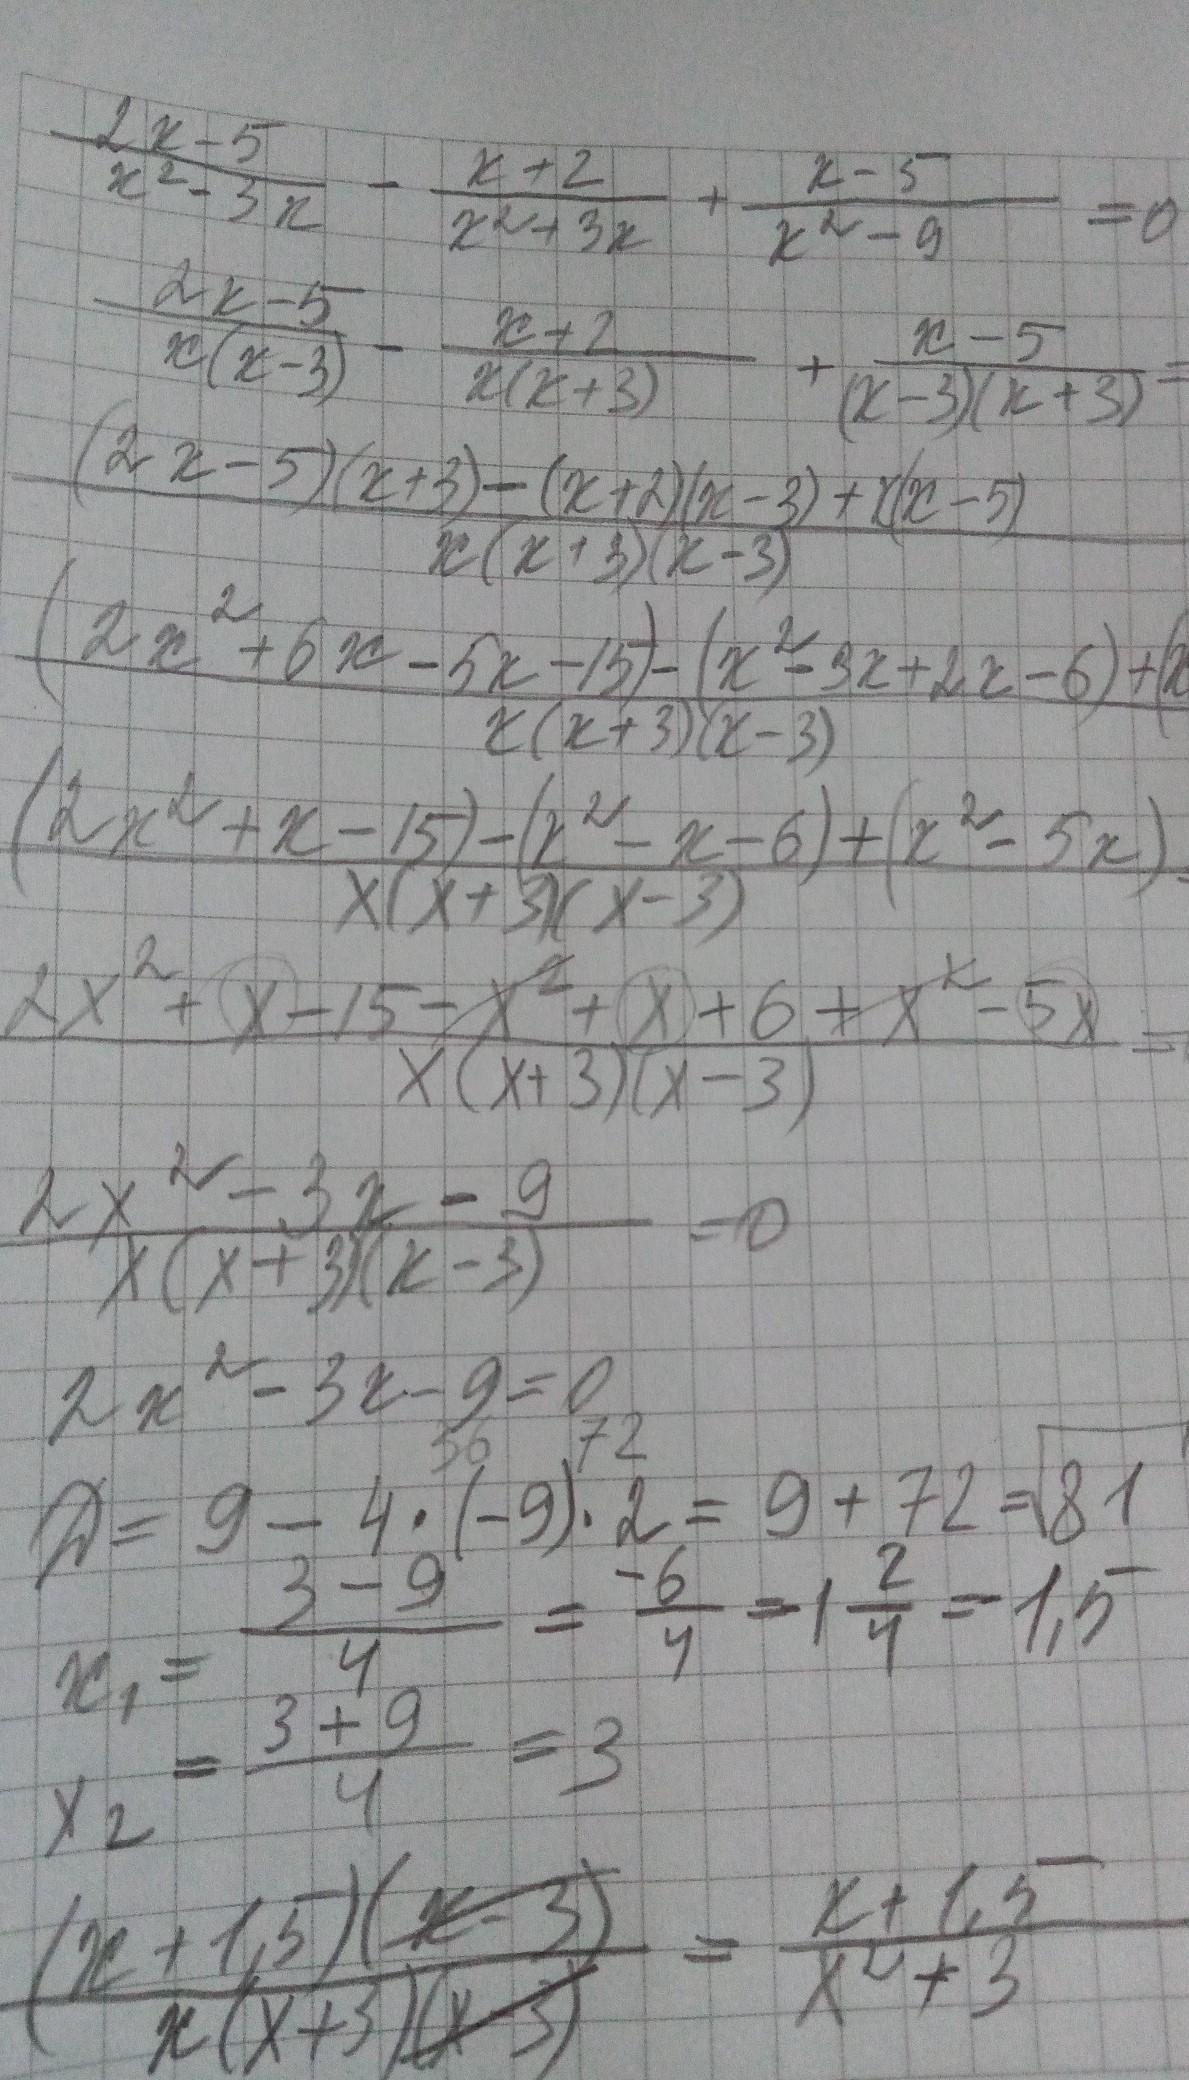 (2x-5)/(x²-3x) - (x+2)/(x²+3x) + (x-5)/(x²-9) = 0
(2x-5)/(x(x-3)) - (x+2)/(x(x+3)) + (x-5)/((x-3)(x+3)) =
((2x-5)(x+3)-(x+2)(x-3)+x(x-5))/(x(x+3)(x-3))
((2x²+6x-5x-15)-(x²-3x+2x-6)+(x/(x(x+3)(x-3))
((2x²+x-15)-(x²-x-6)+(x²-5x))/(x(x+3)(x-3))
(2x²+x-15-x²+x+6+x²-5x)/(x(x+3)(x-3)) =
(2x²-3x-9)/(x(x+3)(x-3)) = 0
2x²-3x-9=0
36 72
D = 9-4·(-9)·2 = 9+72 = √81
x₁ = (3-9)/4 = -6/4 = -1 2/4 = -1,5
x₂ = (3+9)/4 = 3
((x+1,5)(x-3))/(x(x+3)(x-3)) = (x+1,5)/(x²+3)